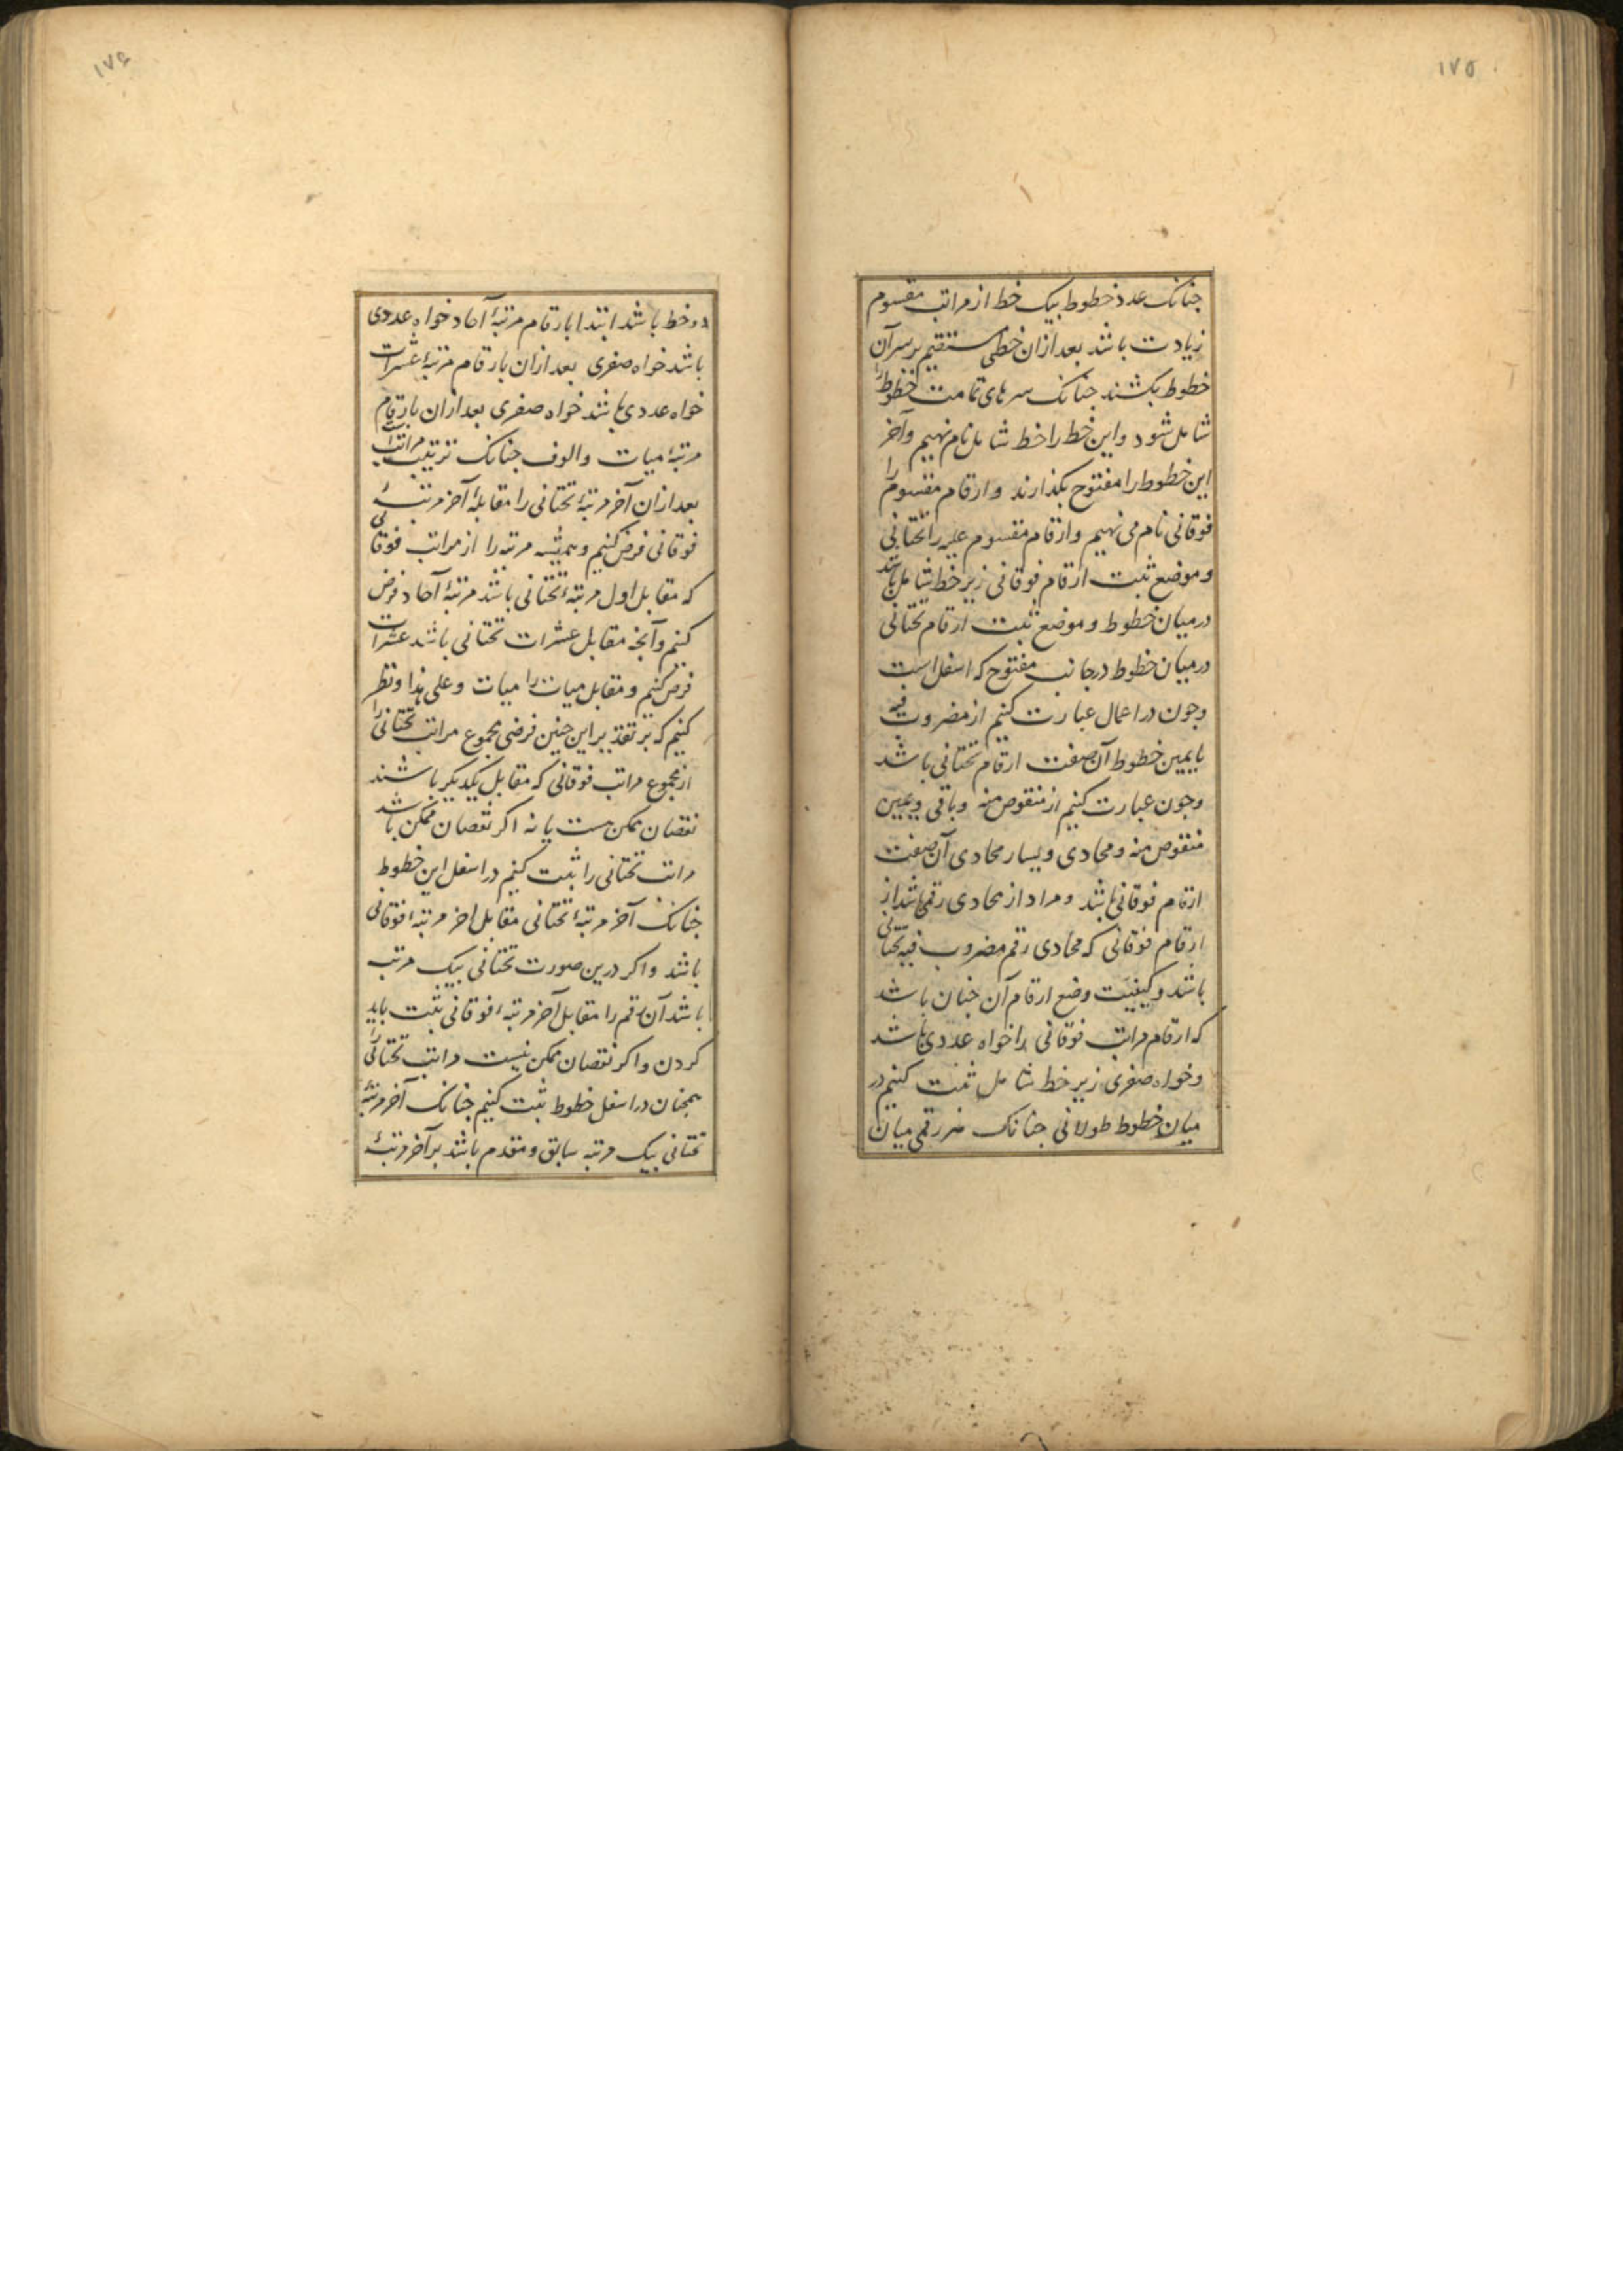 ۱۷۵
جنانک عدد خطوط بیک خط از مراتب مقسوم
زیادت باشد بعد ازان خطی مستقیم بر سر آن
خطوط بکشند جنانک سرهای تمامت خطوط را
شامل شود و این خط را خط شامل نام نهیم و آخر
این خطوط را مفتوح بکذارند و ارقام مقسوم را
فوقانی نام می نهیم و ارقام مقسوم علیه را تختانی
و موضع ثبت ارقام فوقانی زیر خط شامل باشد
در میان خطوط و موضع ثبت ارقام تختانی
در میان خطوط در جانب مفتوح که اسفل است
وجون در اعمال عبارت کنیم از مضروب فیه
یا یمین خطوط آن صفت ارقام تختانی باشد
وجون عبارت کنیم از منقوص منه و باقی و یمین
منقوص منه و محاذی و یسار محاذی آن صفت
ارقام فوقانی باشد و مراد از محاذی رقمی باشد از
ارقام فوقانی که محاذی رقم مضروب فیه تختانی
باشد و کیفیت وضع ارقام آن جنان باشد
که ارقام مراتب فوقانی را خواه عددی باشد
و خواه صفری زیر خط شامل ثبت کنیم در
میان خطوط طولانی جنانک هر رقمی میان
۱۷۶
دو خط باشد ابتدا بارقام مرتبهٔ آحاد خواه عددی
باشد خواه صفری بعد ازان بارقام مرتبهٔ عشرات
خواه عددی باشد خواه صفری بعد ازان بارقام
مرتبهٔ میات و الوف جنانک ترتیب مراتب
بعد ازان آخر مرتبهٔ تختانی را مقابلهٔ آخر مرتبهٔ
فوقانی فرض کنیم و همیشه مرتبه را از مراتب فوقانی
که مقابل اول مرتبهٔ تختانی باشد مرتبهٔ آحاد فرض
کنیم و آنجه مقابل عشرات تختانی باشد عشرات
فرض کنیم و مقابل میات را میات و علی هذا و نظر
کنیم که بر تقدیر این جنین فرضی مجموع مراتب تختانی را
از مجموع مراتب فوقانی که مقابل یکدیکر باشند
نقصان ممکن هست یا نه اکر نقصان ممکن باشد
مراتب تختانی را ثبت کنیم در اسفل این خطوط
جنانک آخر مرتبهٔ تختانی مقابل اخر مرتبهٔ فوقانی
باشد و اکر درین صورت تختانی بیک مرتبه
باشد آن رقم را مقابل آخر مرتبهٔ فوقانی ثبت باید
کردن و اکر نقصان ممکن نیست مراتب تختانی را
همجنان در اسفل خطوط ثبت کنیم جنانک آخر مرتبهٔ
تختانی بیک مرتبه سابق و مقدم باشد بر آخر مرتبهٔ